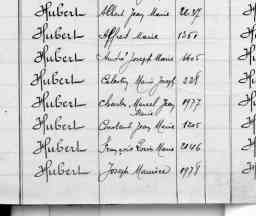 Hubert Albert Jean Marie 2037
Hubert Alfred Marie 1351
Hubert André Joseph Marie 1605
Hubert Célestin Marie Joseph 228
Hubert Charles Marcel Jean Marie 1977
Hubert Constant Jean Marie 1205
Hubert François Louis Marie 2046
Hubert Joseph Maurice 1978